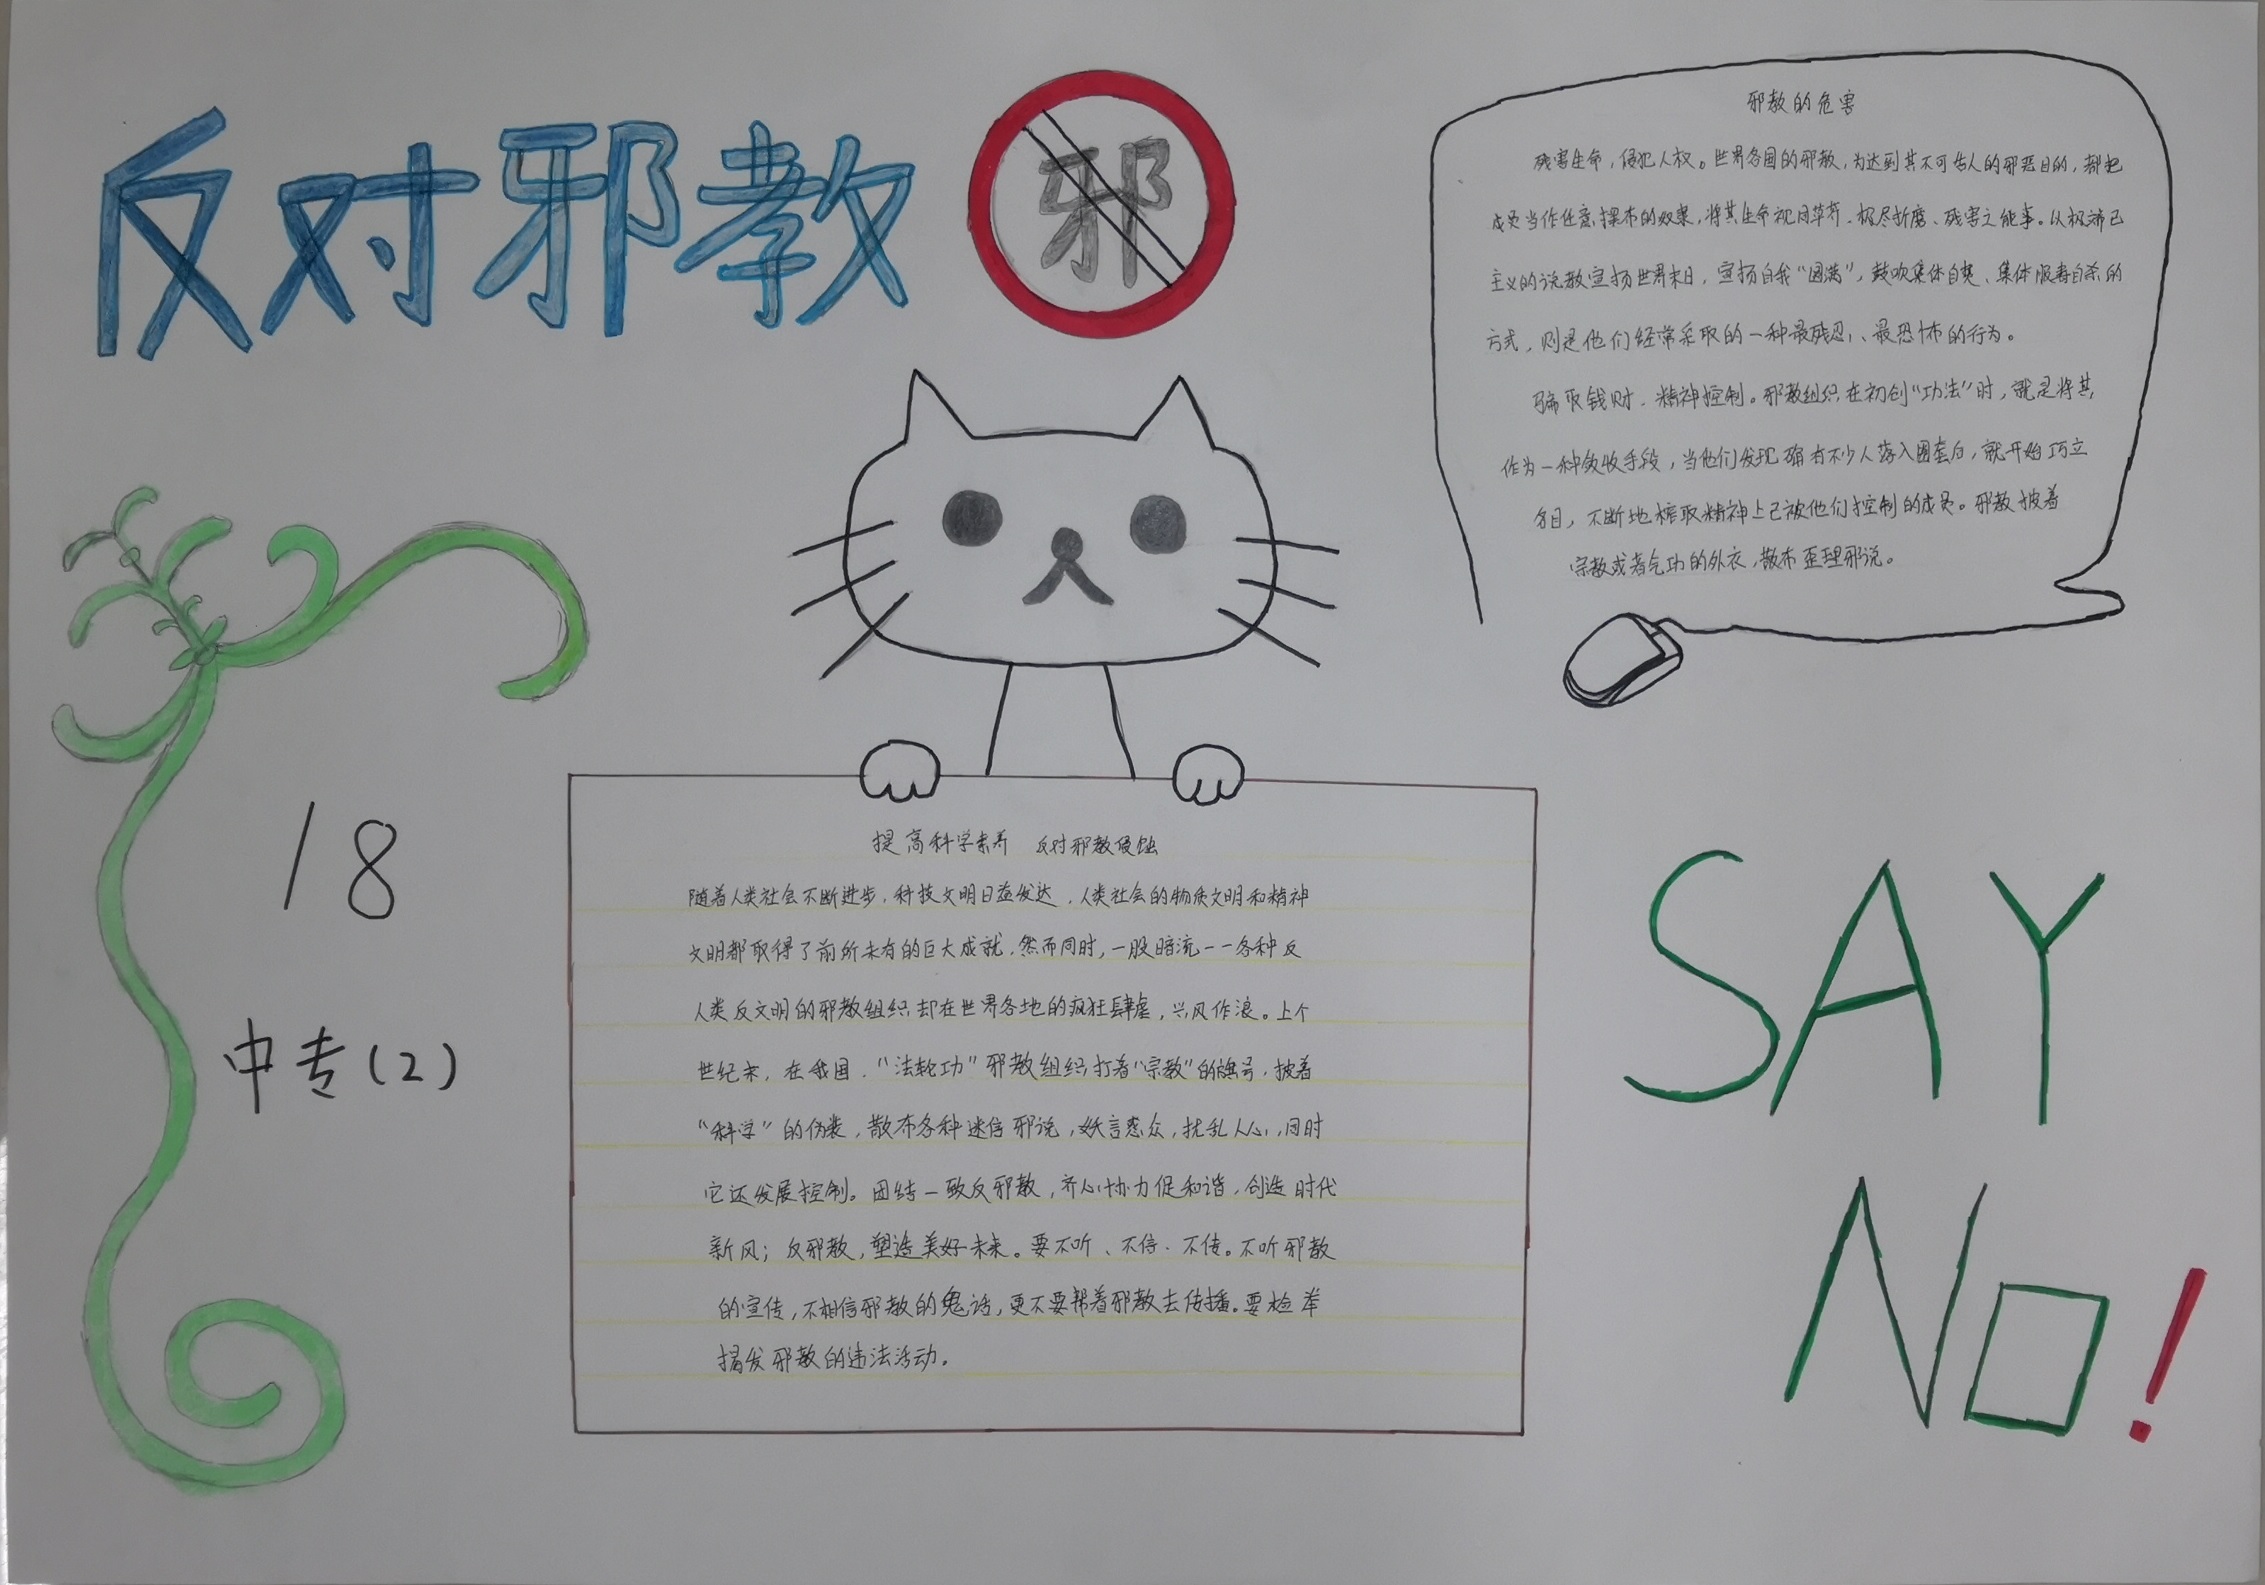 反对邪教
邪
邪教的危害
残害生命，侵犯人权。世界各国的邪教，为达到其不可告人的邪恶目的，都把
成员当作任意摆布的奴隶，将其生命视同草芥、极尽折磨、残害之能事。以极端己
主义的说教宣扬世界末日，宣扬自我“圆满”，鼓吹集体自焚、集体服毒自杀的
方式，则是他们经常采取的一种最残忍、最恐怖的行为。
骗取钱财、精神控制。邪教组织在初创“功法”时，就是将其
作为一种敛收手段，当他们发现确有不少人落入圈套后，就开始巧立
名目，不断地榨取精神上已被他们控制的成员。邪教披着
宗教或者气功的外衣，散布歪理邪说。
提高科学素养 反对邪教侵蚀
随着人类社会不断进步，科技文明日益发达，人类社会的物质文明和精神
文明都取得了前所未有的巨大成就，然而同时，一股暗流——各种反
人类反文明的邪教组织却在世界各地的疯狂肆虐，兴风作浪。上个
世纪末，在我国，“法轮功”邪教组织打着“宗教”的旗号，披着
“科学”的伪装，散布各种迷信邪说，妖言惑众，扰乱人心，同时
它还发展控制。团结一致反邪教，齐心协力促和谐，创造时代
新风；反邪教，塑造美好未来。要不听、不信、不传。不听邪教
的宣传，不相信邪教的鬼话，更不要帮着邪教去传播。要检举
揭发邪教的违法活动。
18
中专（2）
SAY
No!